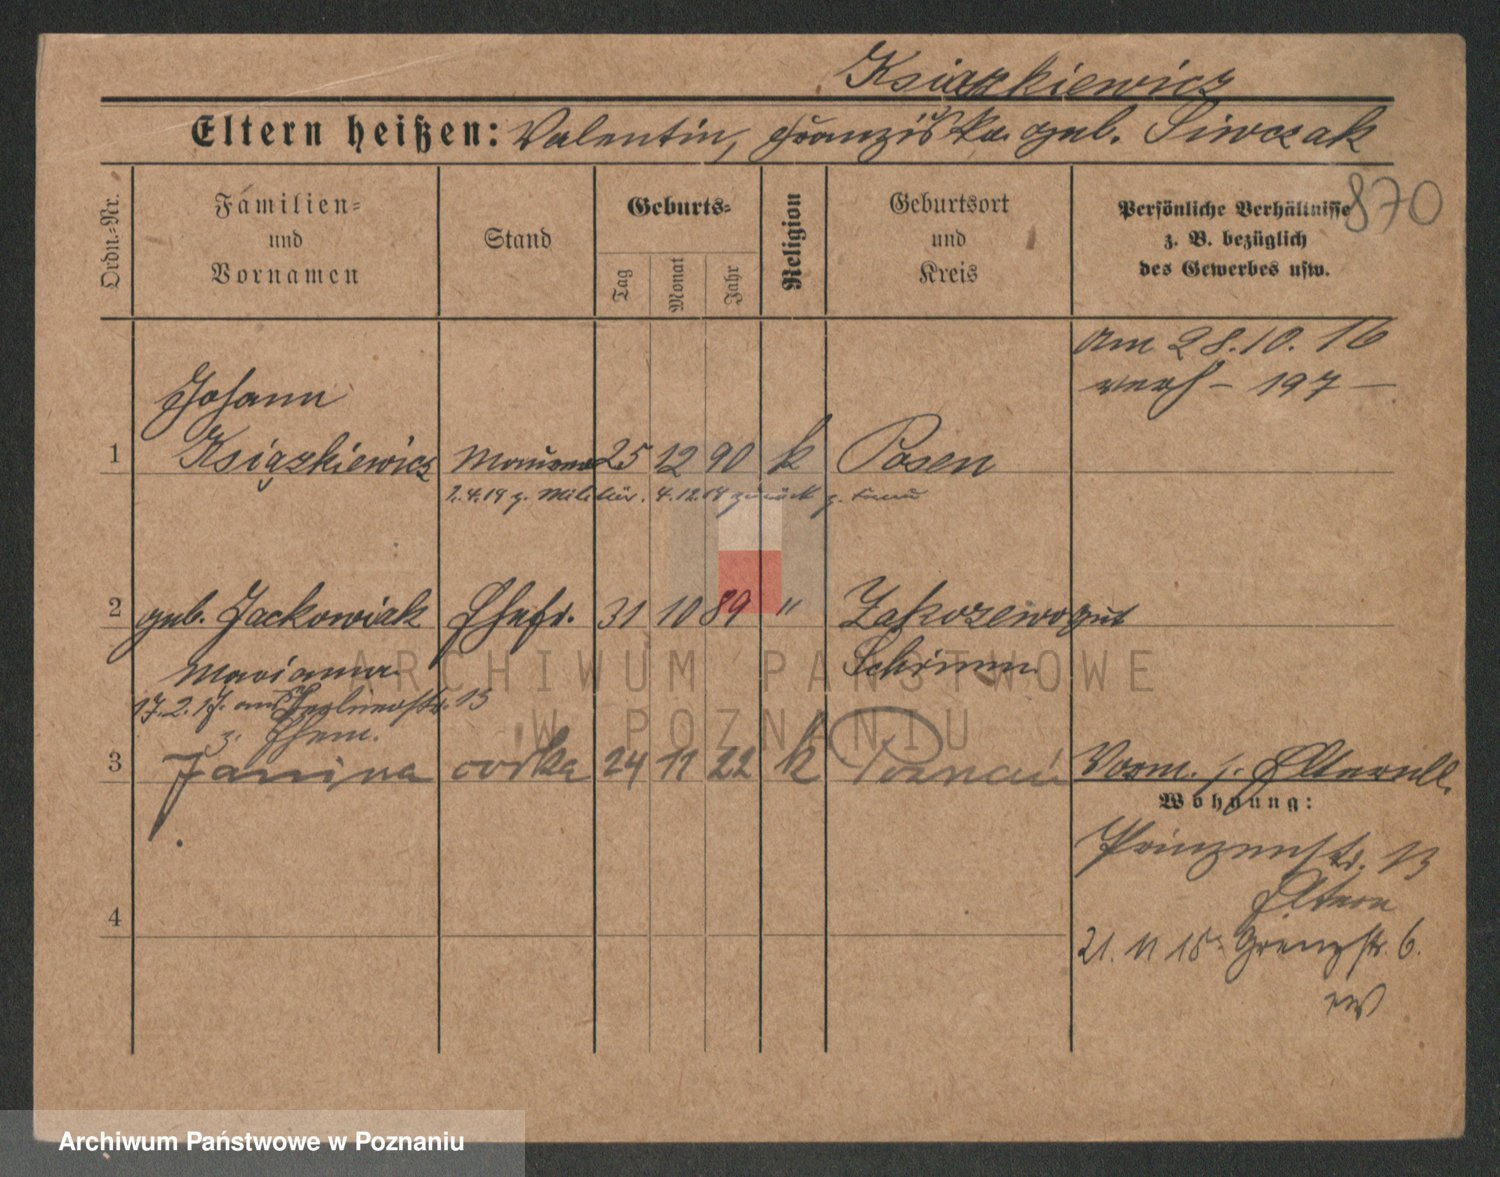 Ksiazkiewicz
Eltern heißen: Valentin, Franziska geb. Siwczak
870
Ordn.-Nr.
Familien- und Vornamen
Stand
Geburts-
Tag
Monat
Jahr
Religion
Geburtsort und Kreis
Persönliche Verhältnisse z. B. bezüglich des Gewerbes usw.
am 28.10.16
verh – 197 –
Johann
1 Książkiewicz Maurer 25 12 90 k Posen
2.4.14 z. Militär. 4.12.18 zurück z.
2 geb. Jackowiak Ehefr. 31 10 89 " Zakrzewo gut
Marianna Schrimm
17.2.17. aus Berlinerstr. 13
z. Ehem.
3 Janina córka 24 11 22 k Poznań Vorm. s. Elternbl.
Wohnung:
Prinzenstr. 13
Eltern
4
21. 11 15 Grenzstr. 6.
ARCHIWUM PAŃSTWOWE
W POZNANIU
Archiwum Państwowe w Poznaniu